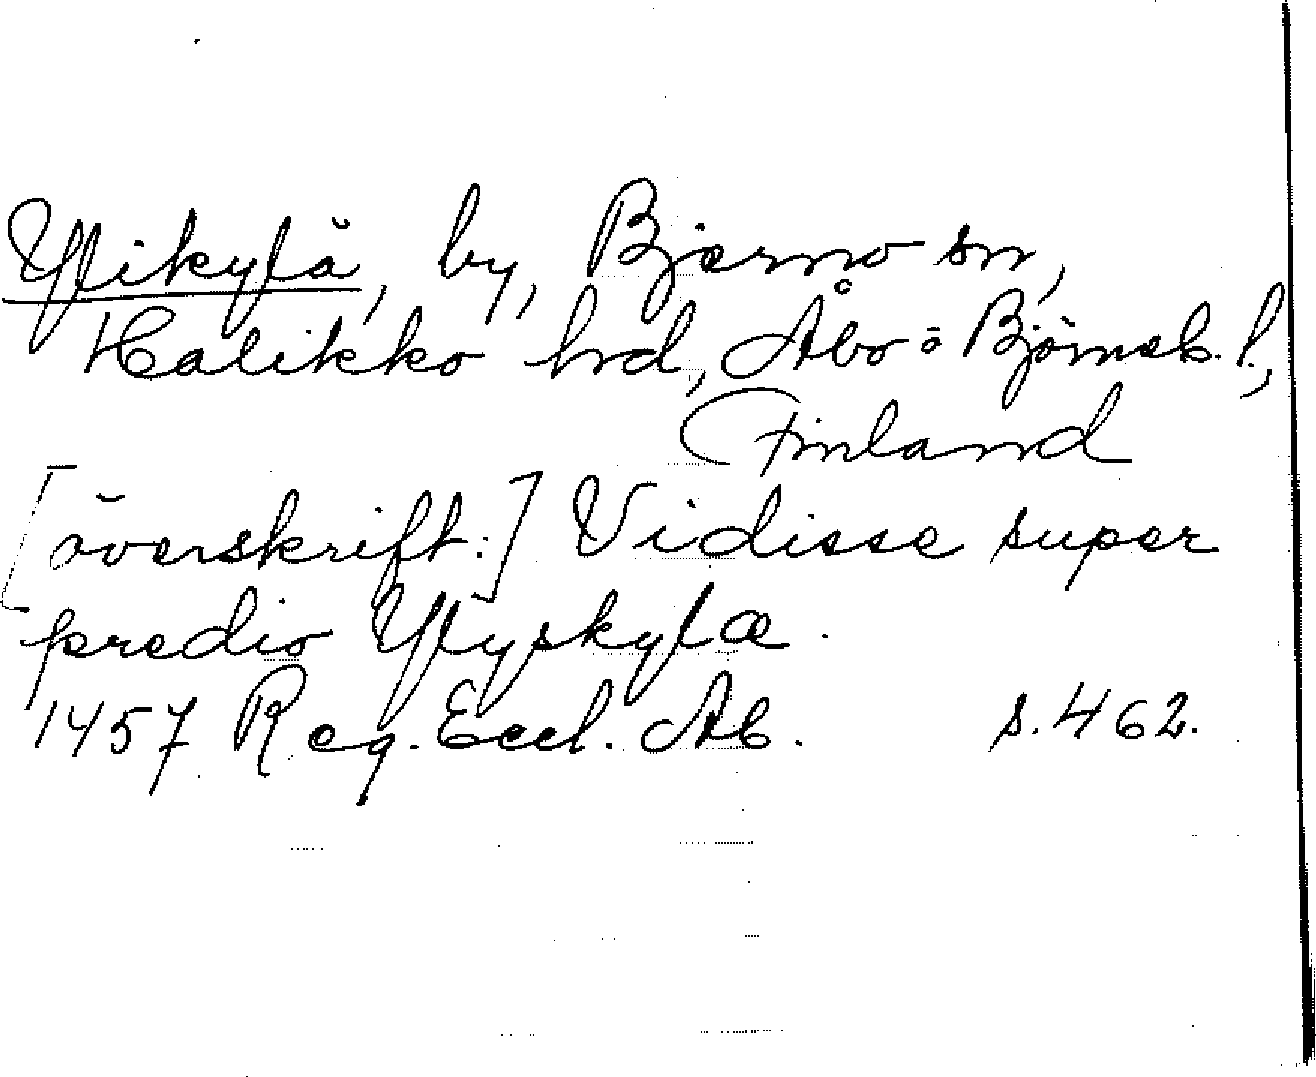 Ylikylä, by, Bjerno sn,
Halikko hrd, Åbo o Björneb. l.,
Finland
[överskrift:] Vidisse super
predio Ylyskylæ.
1457 Reg. Eccl. Ab. s. 462.